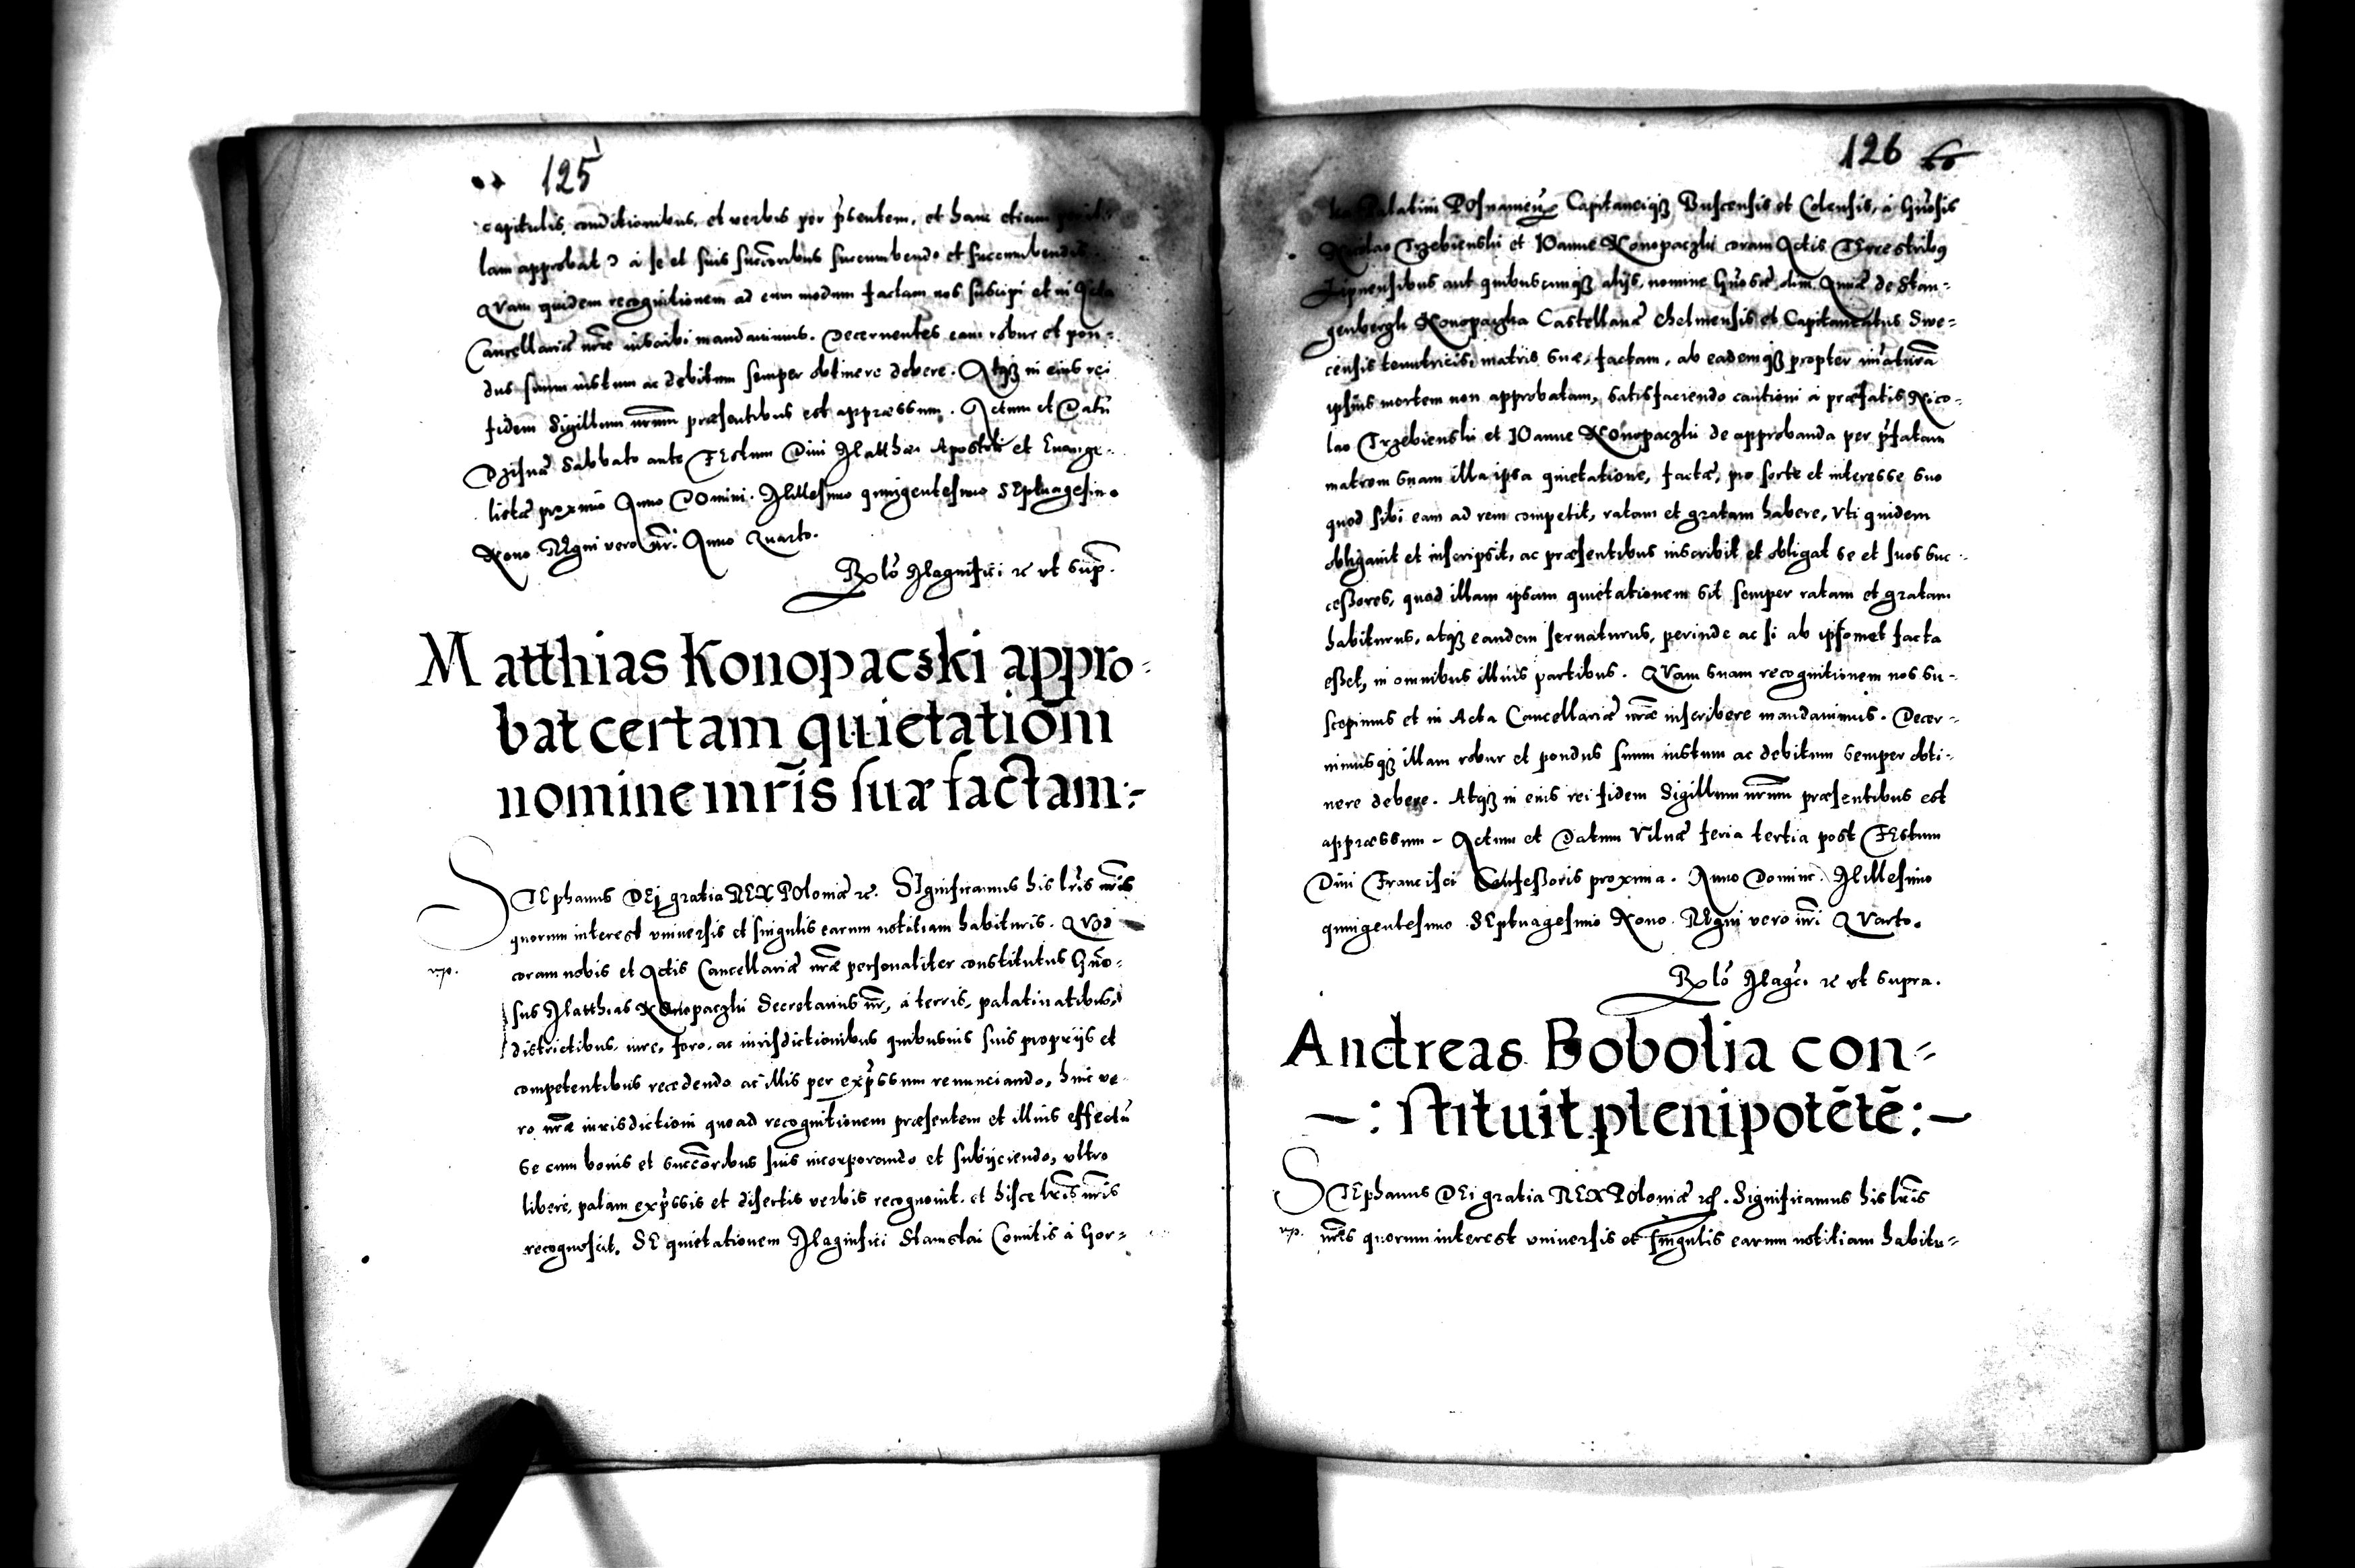 125
capitulis, conditionibus, et verbis per pr̃sentem, et hanc etiam
lam approbat ɔ à se et suis succ̃oribus sucumbendo et sucumbendis
Quam quidem recognitionem ad eum modum factam nos suscipi et in Acta
Cancellariæ nr̃æ inscribi mandauimus. Decernentes eam robur et pon:
dus suum iustum ac debitum semper obtinere debere. Atqꝫ in eius rei
fidem Sigillum nr̃um præsentibus est appræssum. Actum et Datũ
Dzisnæ Sabbato ante FEstum Diui Matthæi Apostoli et Euange:
listæ proximo Anno DOmini. Millesimo quingentesimo SEptuagesimo
Nono REgni vero nr̃i Anno Quarto.
Rełõ Magnifici ꝛc vt sup̃.
Matthias Konopacski appro-
bat certam quietatiom̃
nomine mr̃is suæ factam:-
STEphanus DEi gratia REX POloniæ ꝛc. SIgnificamus his lr̃is nr̃is
quorum interest vniuersis et singulis earum notitiam habituris. Quod
coram nobis et Actis Cancellariæ nr̃æ personaliter constitutus Gño:
sus Matthias KOnopaczki Secretarius nr̃, à terris, palatinatibus,
districtibus, iure, foro, ac iurisdictionibus quibusuis suis proprijs et
competentibus recedendo ac illis per exp̃ssum renunciando, huic ve
ro nr̃æ iurisdictioni quoad recognitionem præsentem et illius effectũ
se cum bonis et succ̃oribus suis incorporando et subijciendo, vltro
libere, palam exp̃ssis et disertis verbis recognouit, et hisce lr̃is nr̃is
recognoscit, SE quietationem Magnifici Stanislai Comitis à Gor:
126
Palatini POsnanieñ Capitaneiqꝫ Buscensis et Colensis, à Gño̊sis
Nicolao Trzebienski et IOanne KOnopaczki coram Actis TErrestribꝰ
Lipnensibus aut quibuscunqꝫ alijs, nomine Gño̊sæ olim Annæ de Stan:
genbergk Konopaczka Castellanæ Chelmensis et Capitaneatus Swe:
censis tenutricis, matris suæ, factam, ab eademqꝫ propter im̃aturã
ipsius mortem non approbatam, satisfaciendo cautioni à præfatis Nico:
lao Trzebienski et IOanne KOnopaczki de approbanda per p̃fatam
matrem suam illa ipsa quietatione, factæ, pro sorte et interesse suo
quod sibi eam ad rem competit, ratam et gratam habere, vti quidem
obligauit et inscripsit, ac præsentibus inscribit et obligat se et suos suc
cessores, quod illam ipsam quietationem sit semper ratam et gratam
habiturus, atqꝫ eandem seruaturus, perinde ac si ab ipsomet facta
esset, in omnibus illius partibus. QVam suam recognitionem nos su-
scepimus et in Acta Cancellariæ nr̃æ inscribere mandauimus. Decer-
nimusqꝫ illam robur et pondus suum iustum ac debitum semper obti-
nere debere. Atqꝫ in eius rei fidem Sigillum nr̃um præsentibus est
appræssum - Actum et Datum Vilnæ feria tertia post FEstum
Diui Francisci Confessoris proxima. Anno Domini Millesimo
quingentesimo SEptuagesimo Nono. REgni vero nr̃i QVarto.
Rełõ Mag̃ci ꝛc vt supra.
Andreas Bobolia con-
-: stituit plenipotẽtẽ:-
STEphanus DEi gratia REX POloniæ ꝛc. Significamus his lr̃is
nr̃is quorum interest vniuersis et singulis earum notitiam habitu-